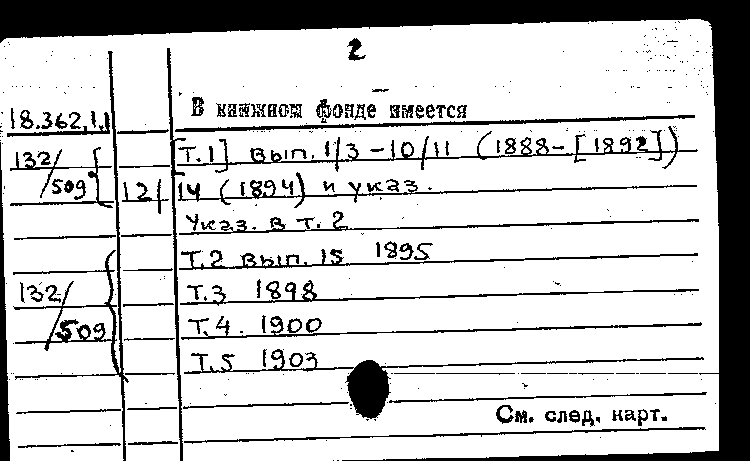 2
В книжном фонде имеется
18.362.1.1
[Т.1] вып. 1/3-10/11 (1888-[1892])
132/509 12/14 (1894) и указ.
Указ. в т. 2
Т.2 вып. 15 1895
132/509 Т.3 1898
Т.4. 1900
Т.5 1903
См. след. карт.